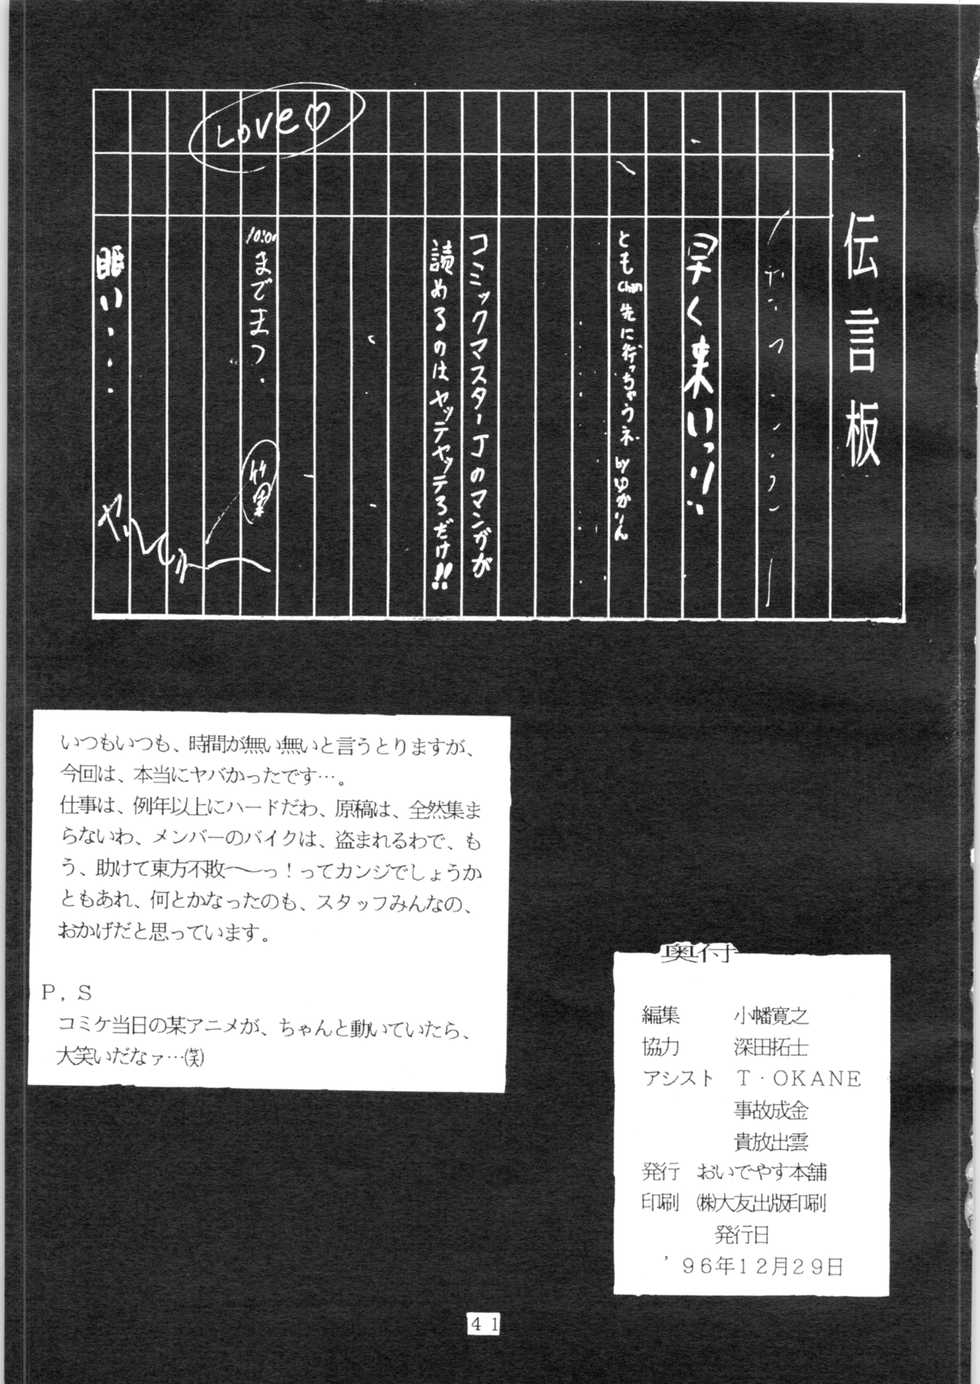 伝言板
早く来いっ!!
ともchan先に行っちゃうネ byゆかりん
コミックマスターJのマンガが
読めるのはヤッテヤッテるだけ!!
10:00までまつ.
竹男
眠い・・・
Love
いつもいつも、時間が無い無いと言うとりますが、
今回は、本当にヤバかったです…。
仕事は、例年以上にハードだわ、原稿は、全然集ま
らないわ、メンバーのバイクは、盗まれるわで、も
う、助けて東方不敗〜〜っ！ってカンジでしょうか
ともあれ、何とかなったのも、スタッフみんなの、
おかげだと思っています。
P．S
コミケ当日の某アニメが、ちゃんと動いていたら、
大笑いだなァ…(笑)
奥付
編集　小幡寛之
協力　深田拓士
アシスト　T・OKANE
事故成金
貴放出雲
発行　おいでやす本舗
印刷　㈱大友出版印刷
発行日
’96年12月29日
41